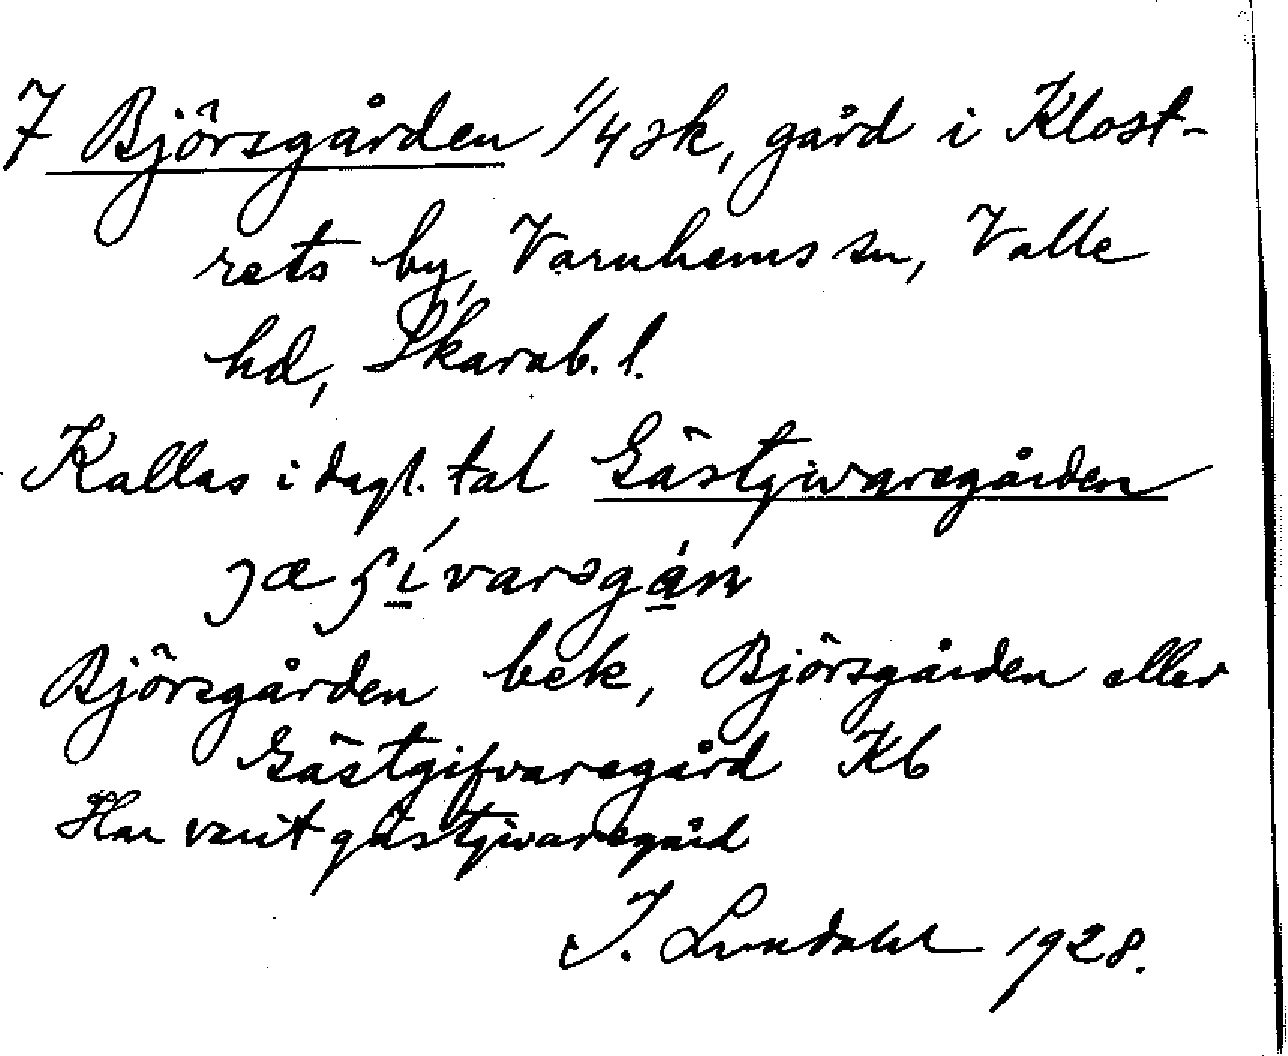 7 Björsgården 1/4 sk, gård i Klost-
rets by, Varnhems sn, Valle
hd, Skarab. l.
Kallas i dagl. tal Gästgivaregården
Björsgården bek, Björsgården eller
Gästgifvaregård Kb
Har varit gästgivaregård
I. Lundahl 1928.